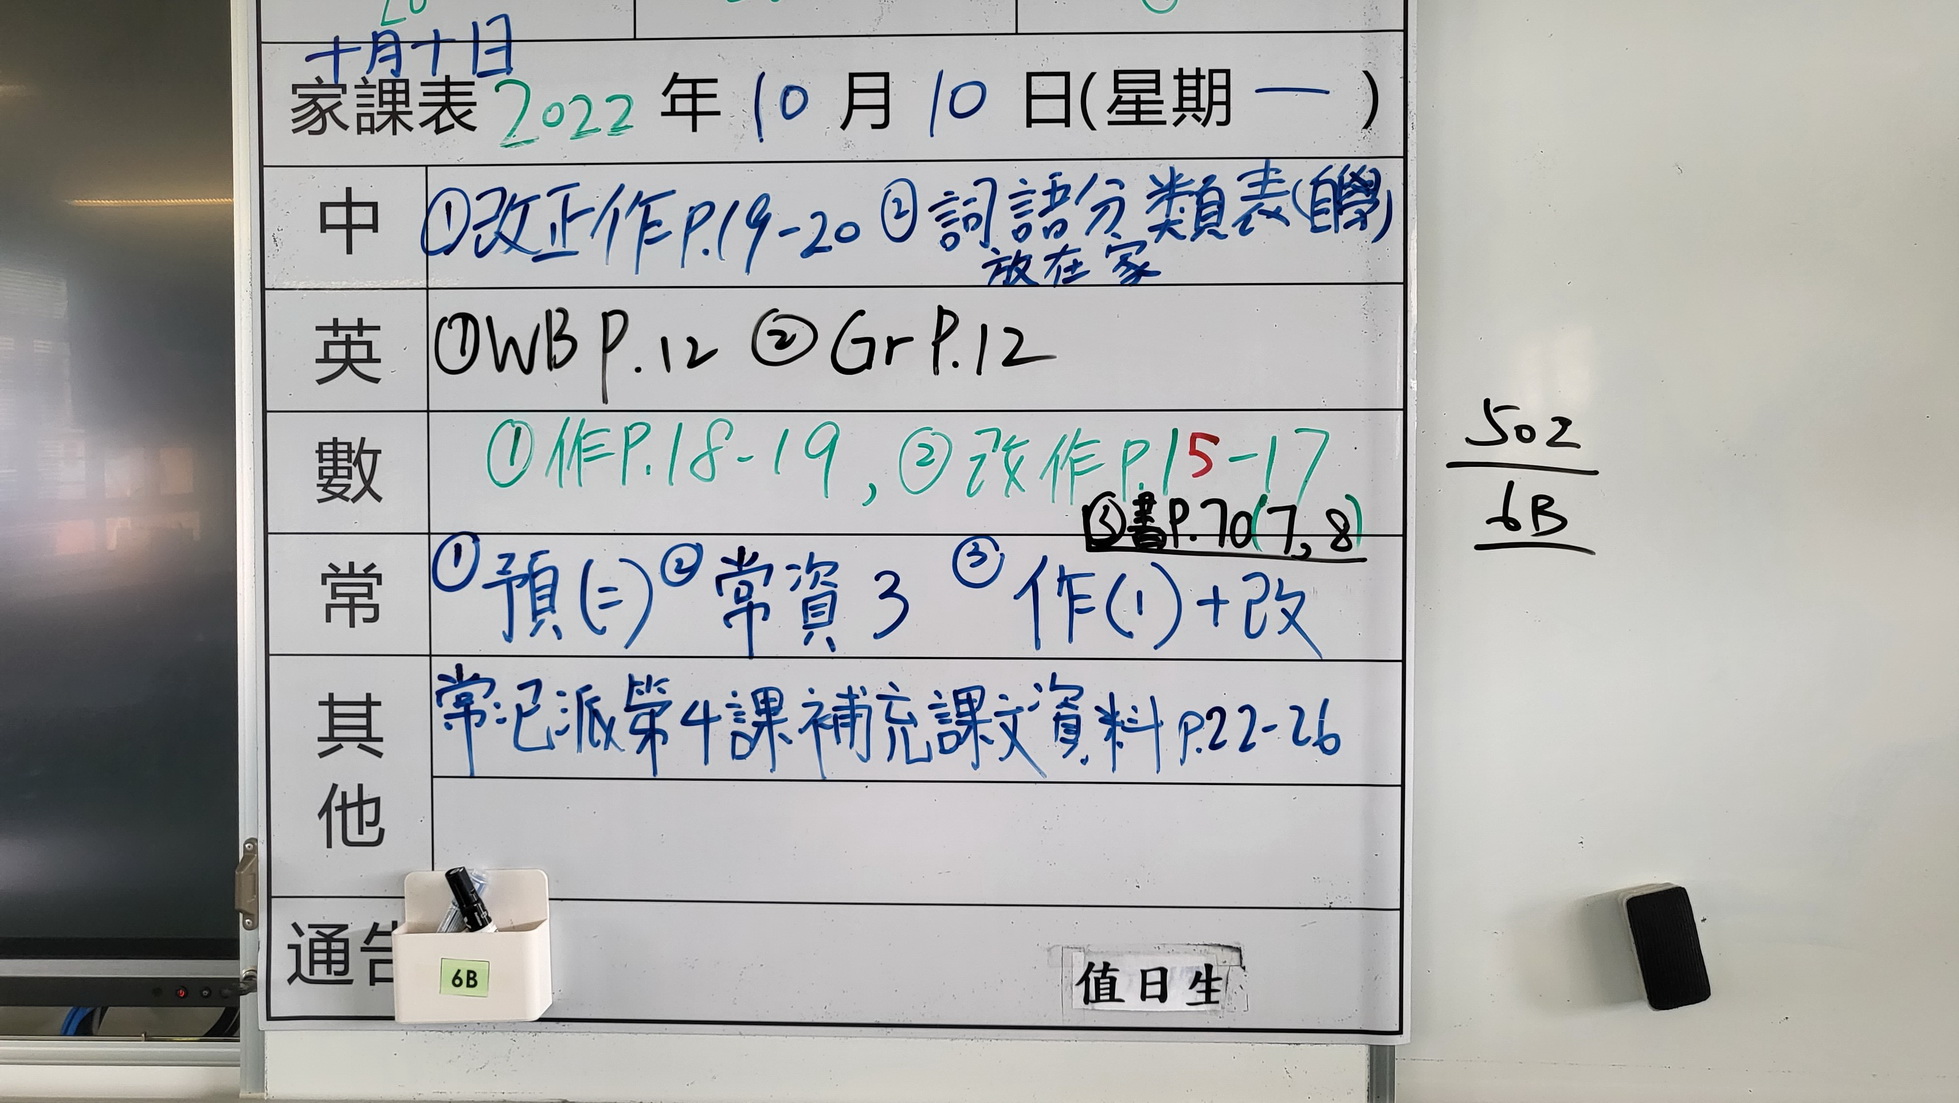 十月十日
家課表 2022 年 10 月 10 日(星期 一 )
中 ①改正作P.19-20 ②詞語分類表(自學)
放在家
英 ①WB P.12 ②Gr P.12
數 ①作P.18-19, ②改作P.15-17
③書P.70(7,8)
常 ①預(二) ②常資3 ③作(1)+改
其他 常:已派第4課補充課文資料 p.22-26
通告
值日生
6B
502
6B